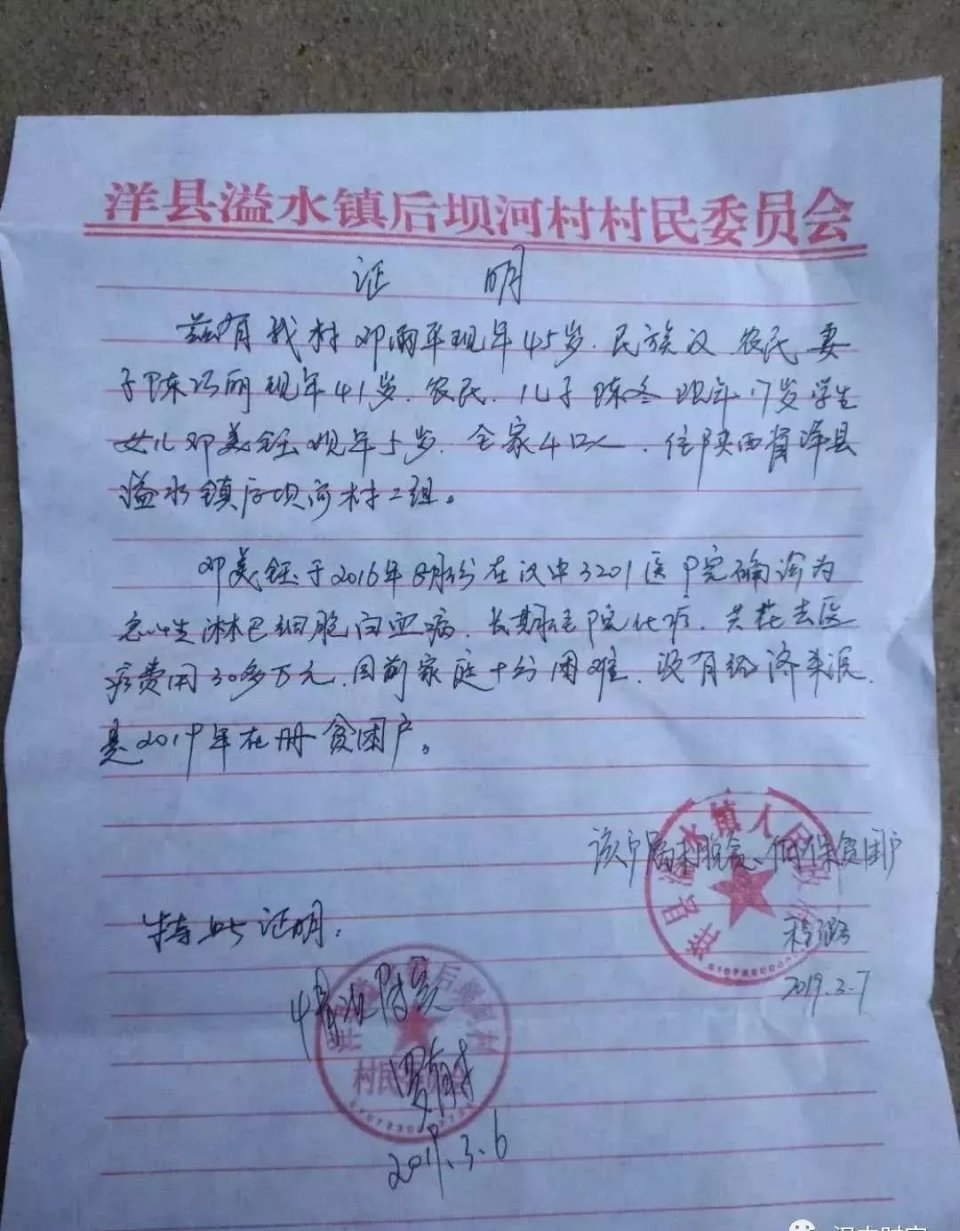 洋县溢水镇后坝河村村民委员会
证 明
兹有我村邓雨平现年45岁.民族汉 农民 妻
子陈巧丽现年41岁.农民.儿子陈冬现年17岁学生
女儿邓美钰现年5岁.全家4口人.住陕西省洋县
溢水镇后坝河村二组。
邓美钰于2016年8月份在汉中3201医院确诊为
急性淋巴细胞白血病.长期住院化疗.共花去医
疗费用30多万元.目前家庭十分困难.没有经济来源.
是2019年在册贫困户。
该户属未脱贫、低保贫困户
特此证明.
情况属实
2019.3.7
2019.3.6
洋县溢水镇人民政府
后坝河村
村民委员会